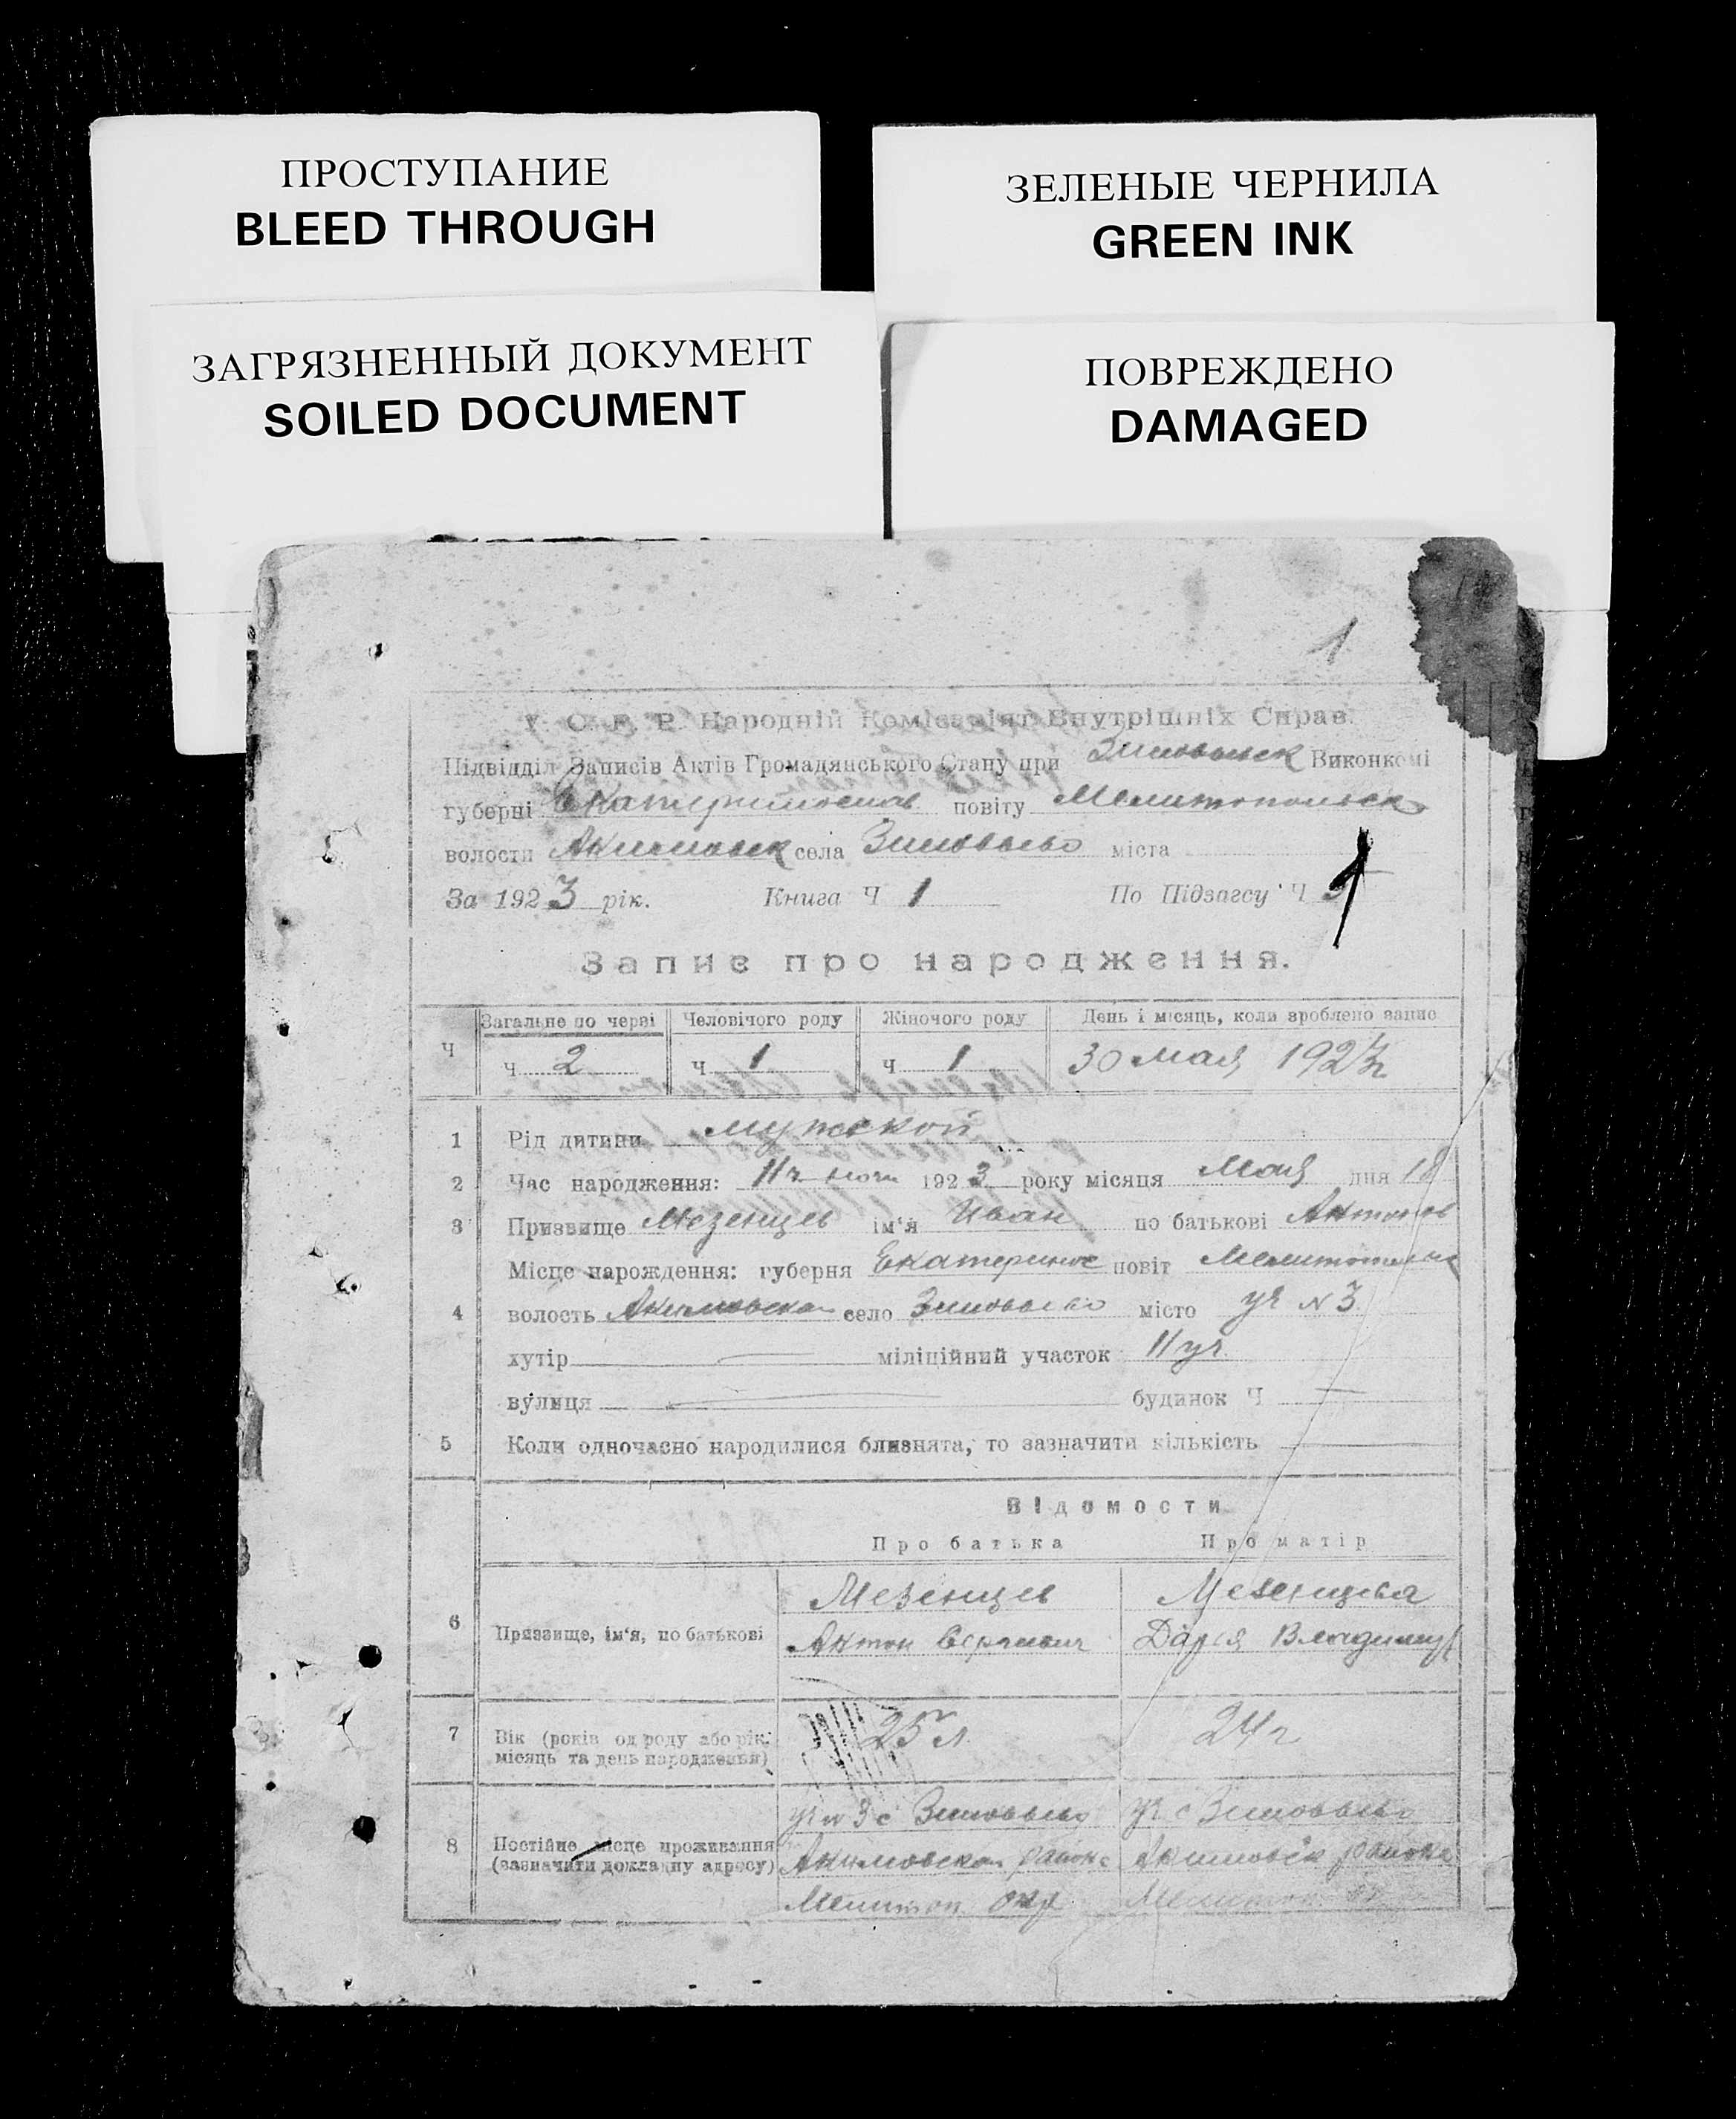 ПРОСТУПАНИЕ
BLEED THROUGH
ЗЕЛЕНЫЕ ЧЕРНИЛА
GREEN INK
ЗАГРЯЗНЕННЫЙ ДОКУМЕНТ
SOILED DOCUMENT
ПОВРЕЖДЕНО
DAMAGED
1
У. С. Р. Р. Народній Комісаріят Внутрішніх Справ.
Підвідділ Записів Актів Громадянського Стану при Зиновьевск Виконкомі
губерні Екатеринослав повіту Мелитопольск
волости Акимовск села Зиновьево міста
За 1923 рік. Книга Ч 1 По Підзагсу Ч 1
Запис про народження.
Ч Загальне по черзі Человічого роду Жіночого роду День і місяць, коли зроблено запис
ч 2 ч 1 ч 1 30 мая 1923 г
1 Рід дитини мужской
2 Час народження: 11 ч ночи 1923 року місяця Мая дня 18
3 Призвище Мезенцев ім'я Иван по батькові Антонов
Місце нарождення: губерня Екатеринос повіт Мелитопольск
4 волость Акимовская село Зиновьево місто уч № 3
хутір міліційний участок 11 уч.
вулиця будинок Ч
5 Коли одночасно народилися близнята, то зазначити кількість
Відомости
Про батька Про матір
6 Призвище, ім'я, по батькові
Мезенцев Мезенцева
Антон Сергиевич Дарья Владимир
7 Вік (років од роду або рік, місяць та день народження) 25 л. 24 г
8 Постійне місце проживання (зазначити докладну адресу)
уч № 3 с Зиновьево уч с Зиновьево
Акимовского района Акимовск района
Мелитоп. окр. Мелитоп.